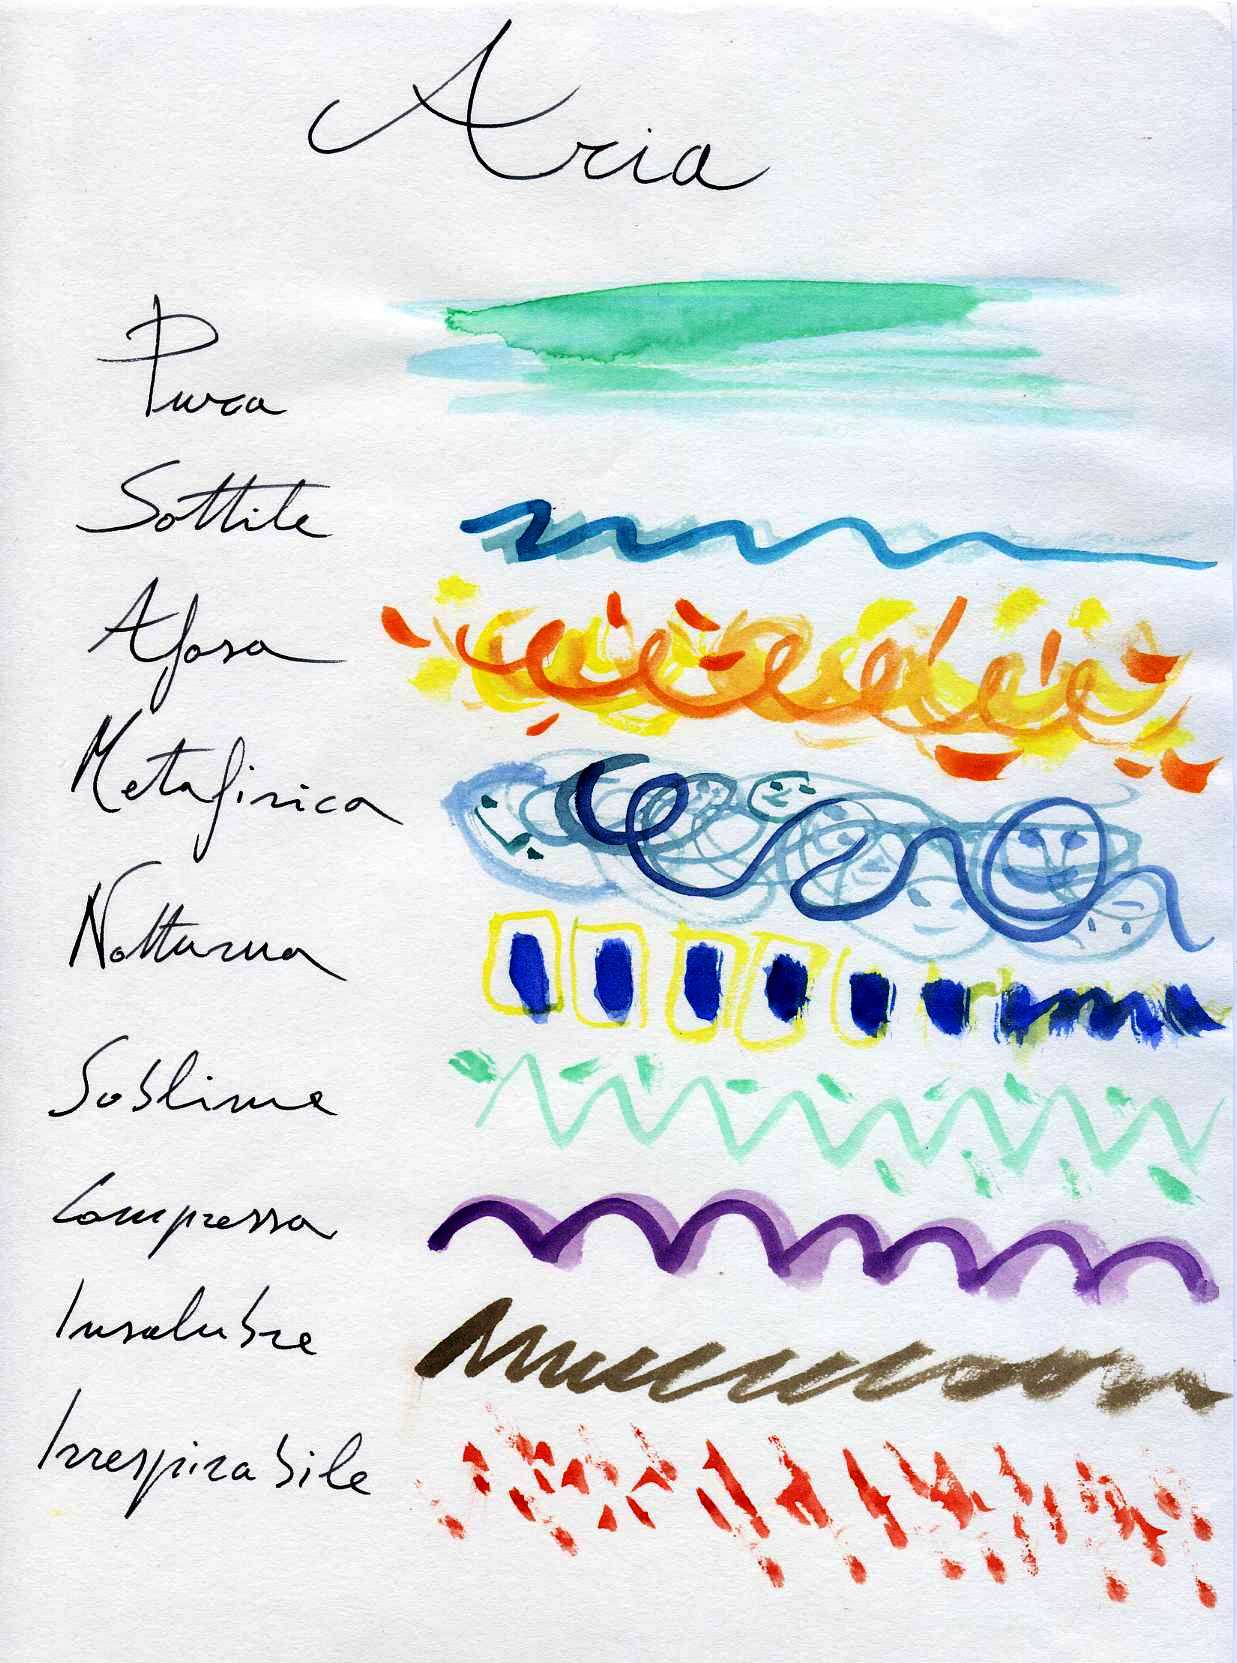 Aria
Pura
Sottile
Afosa
Metafisica
Notturna
Sublime
Compressa
Insalubre
Irrespirabile